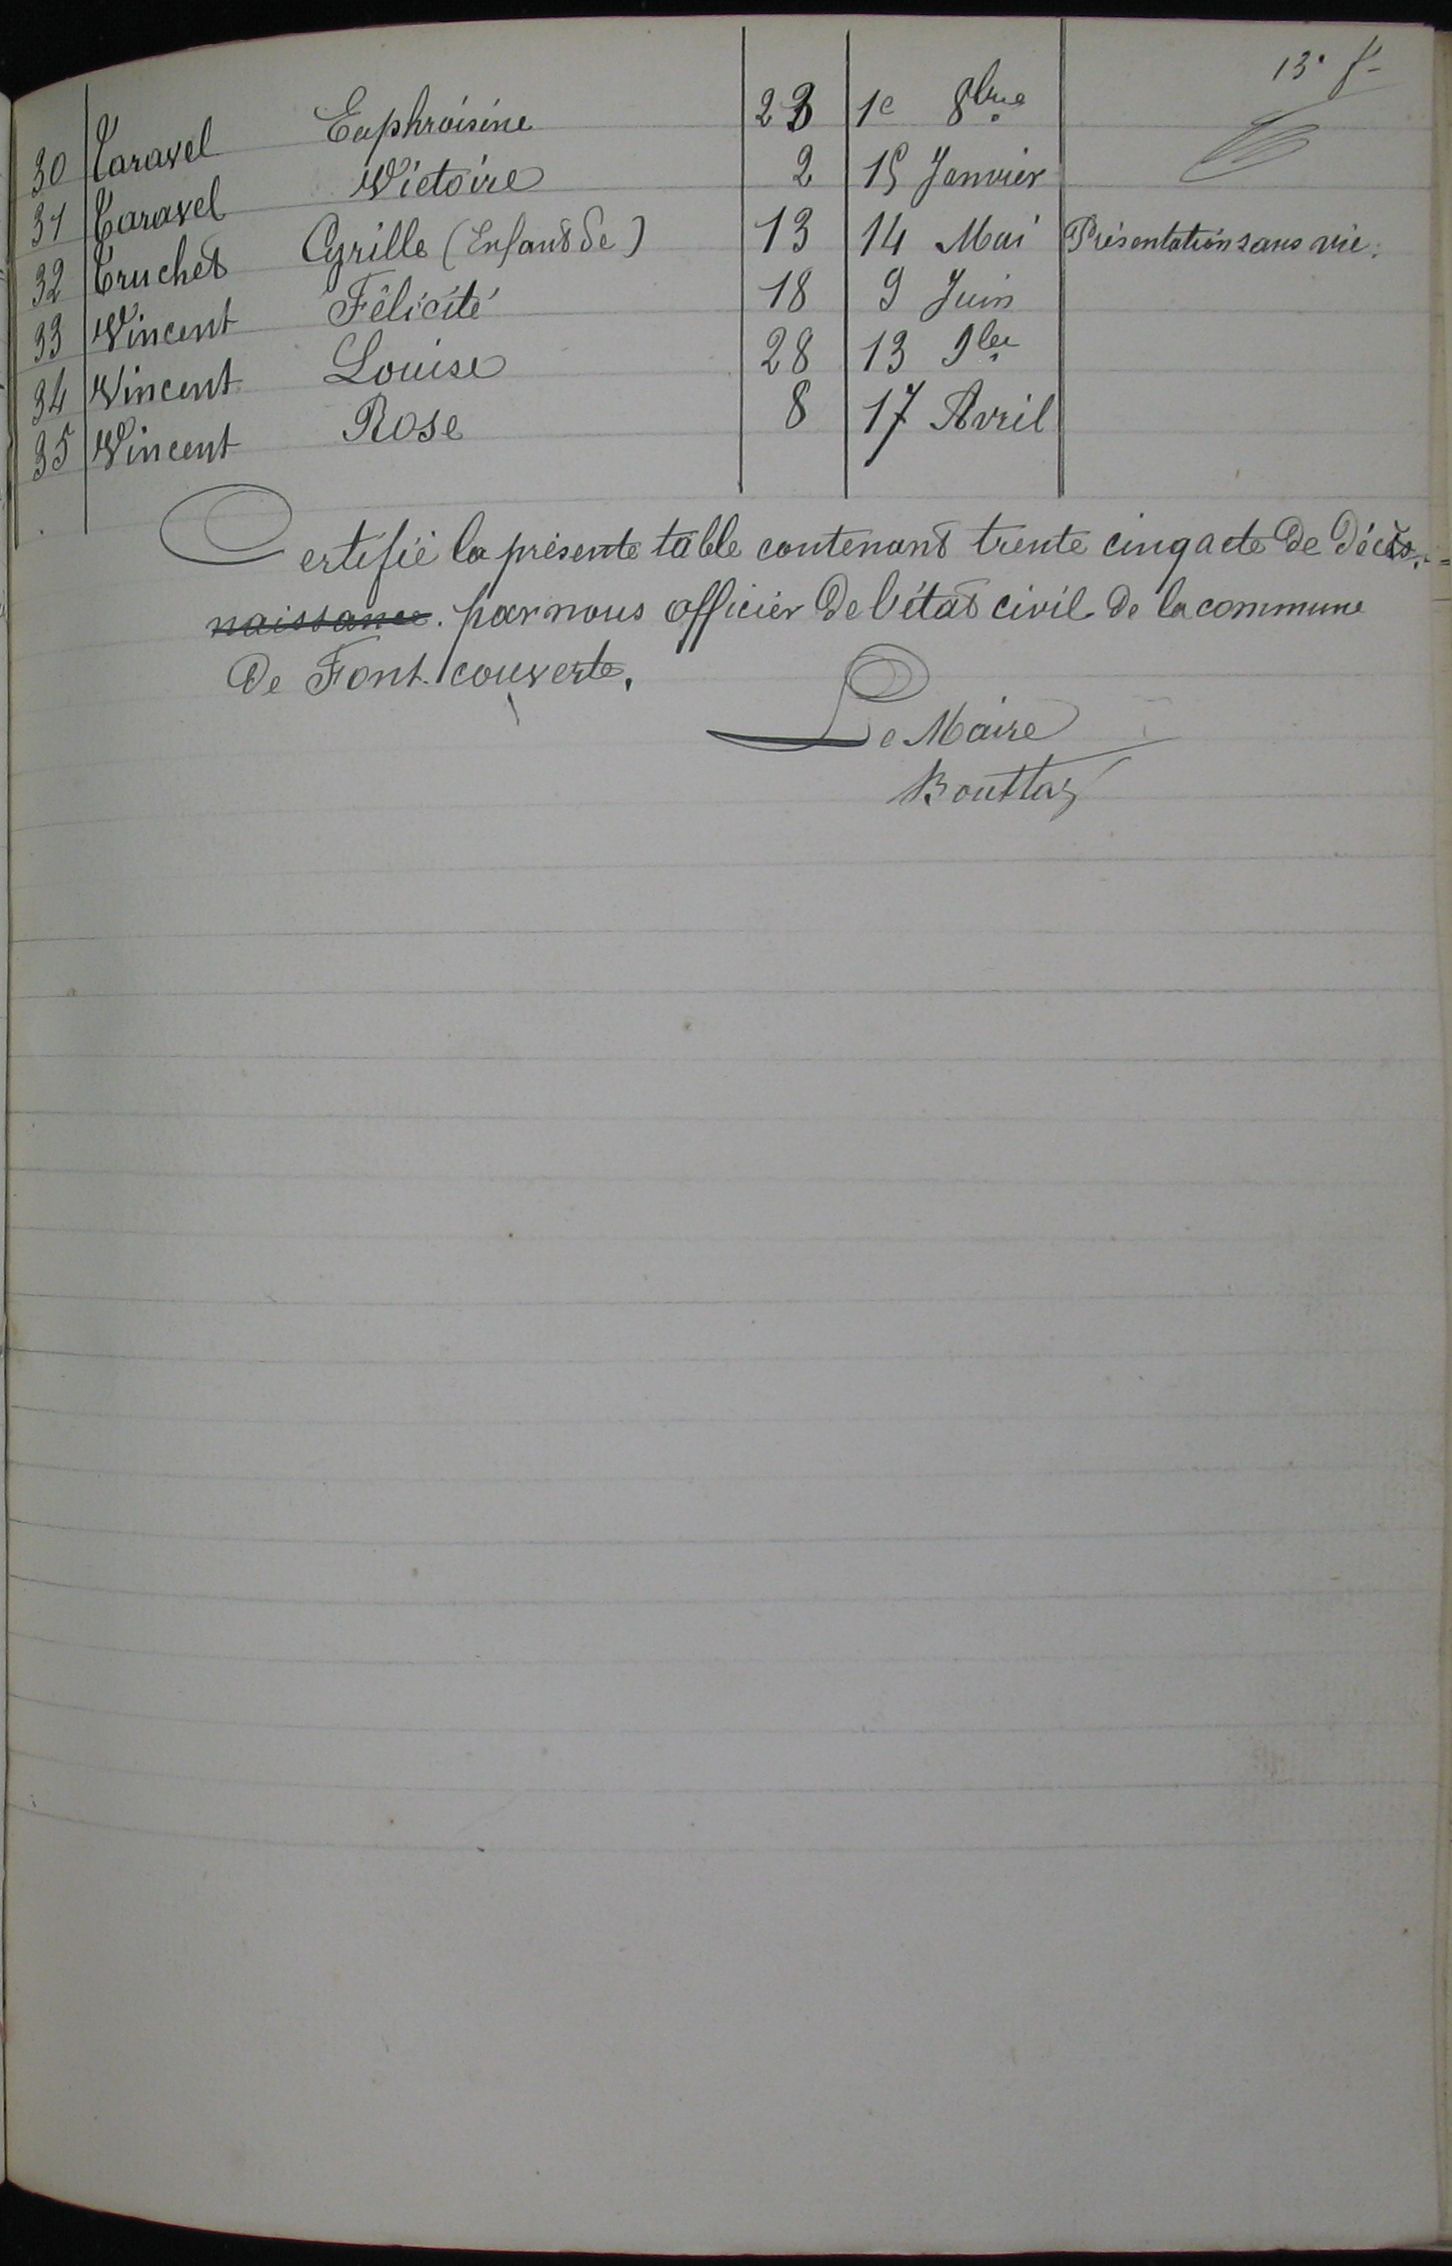 13e f
30 Taravel Euphroisine 23 1e 8bre
31 Taravel Victoire 2 15 Janvier
32 Truchet Cyrille (Enfant de) 13 14 Mai Présentation sans vie.
33 Vincent Félicité 18 9 Juin
34 Vincent Louise 28 13 9bre
35 Vincent Rose 8 17 Avril
Certifié la présente table contenant trente cinq acte de décès.
naissance. par nous officier de l'état civil de la commune
de Fontcouverte.
Le Maire
Bouttaz